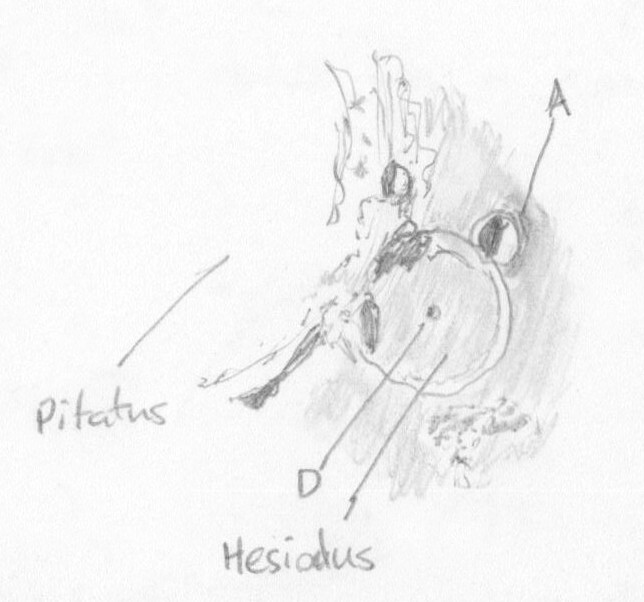 A
Pitatus
D
Hesiodus